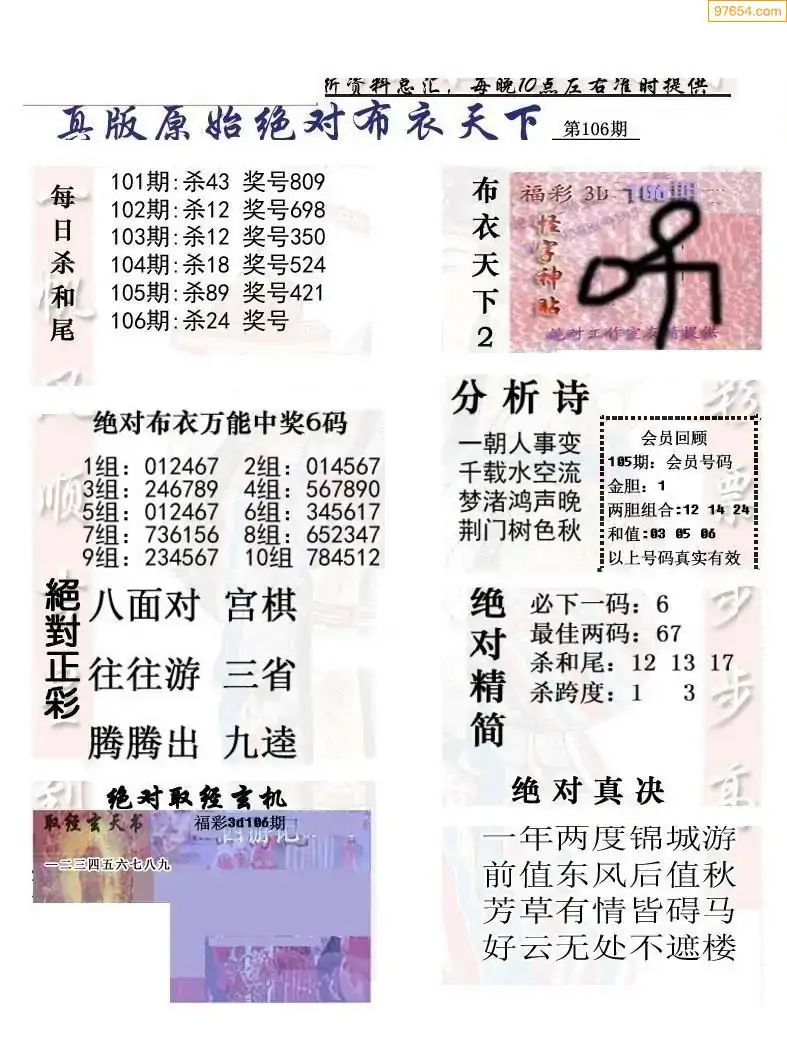 97654.com
析资料总汇，每晚10点左右准时提供
真版原始绝对布衣天下 第106期
每日杀和尾
101期:杀43 奖号809
102期:杀12 奖号698
103期:杀12 奖号350
104期:杀18 奖号524
105期:杀89 奖号421
106期:杀24 奖号
布衣天下2
福彩 3D 106期
怪字神贴
绝对工作室友情提供
绝对布衣万能中奖6码
1组：012467 2组：014567
3组：246789 4组：567890
5组：012467 6组：345617
7组：736156 8组：652347
9组：234567 10组 784512
分析诗
一朝人事变
千载水空流
梦渚鸿声晚
荆门树色秋
会员回顾
105期：会员号码
金胆：1
两胆组合:12 14 24
和值:03 05 06
以上号码真实有效
絕對正彩
八面对 宫棋
往往游 三省
腾腾出 九逵
绝对精简
必下一码：6
最佳两码：67
杀和尾：12 13 17
杀跨度：1 3
绝对取经玄机
取经玄天书
福彩3d106期
西游记
一二三四五六七八九
绝对真决
一年两度锦城游
前值东风后值秋
芳草有情皆碍马
好云无处不遮楼